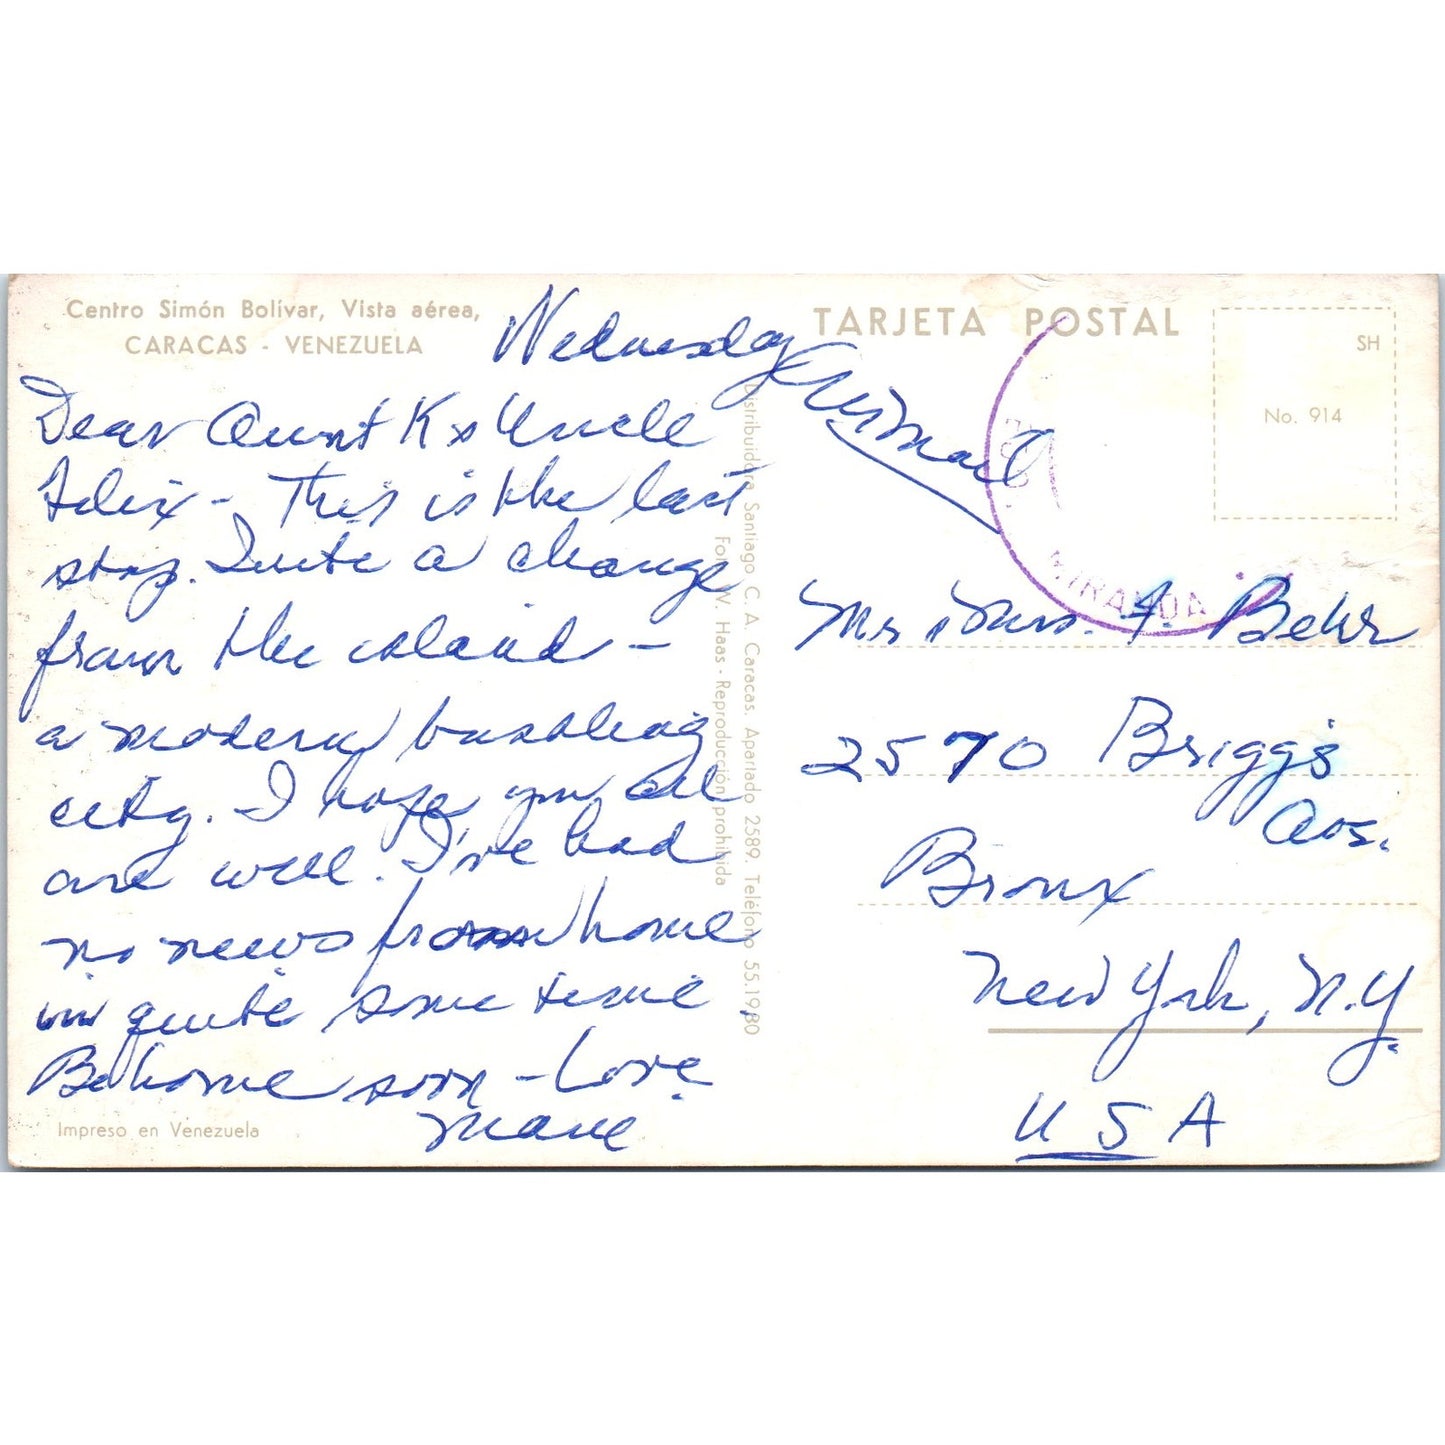 Centro Simón Bolívar, Vista aérea,
CARACAS - VENEZUELA
Wednesday
Dear Aunt K & Uncle
Felix - This is the last
stop. Quite a change
from the island -
a modern bustling
city. I hope you all
are well. I've had
no news from home
in quite some time
Be home soon - Love
Impreso en Venezuela
Distribuidora Santiago C. A. Caracas. Apartado 2589. Teléfono 55.19.80
Foto W. Haas - Reproducción prohibida
TARJETA POSTAL
Air Mail
SH
No. 914
MIRANDA
Mr & Mrs. F. Behr
2570 Briggs
Ave.
Bronx
New York, N.Y.
USA